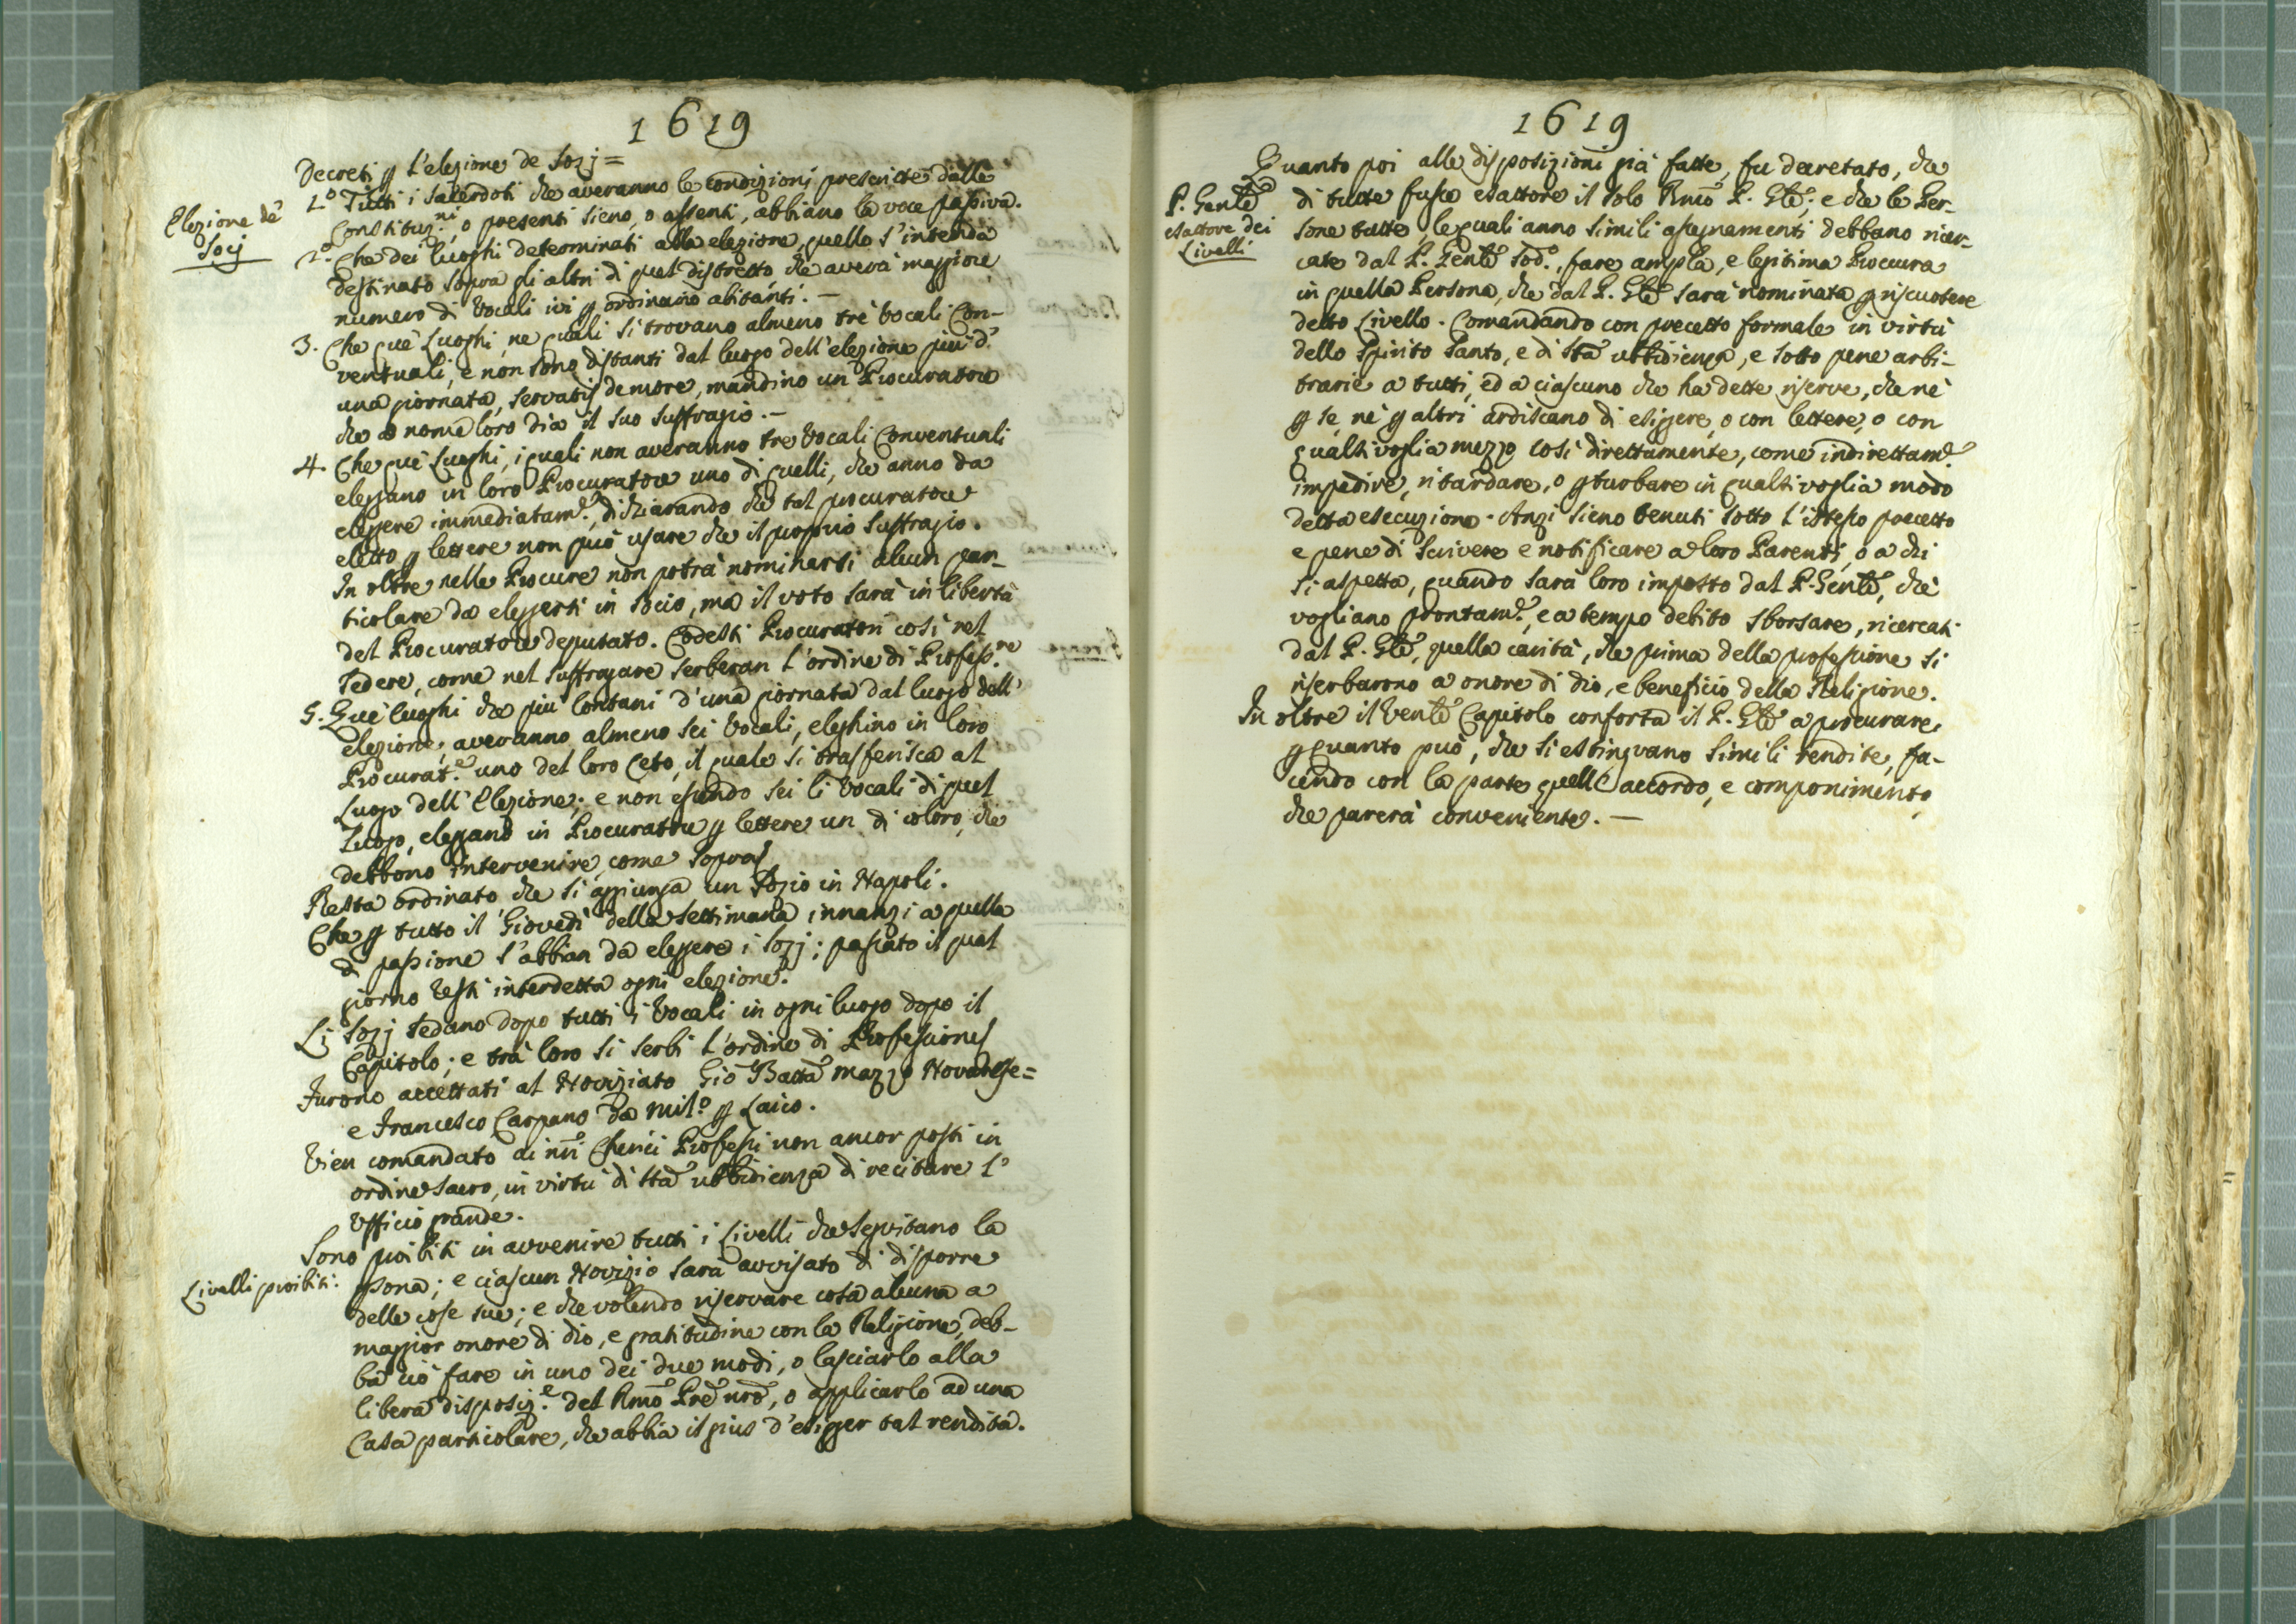 1619
Decreti p l'elezione de Sozj =
Elezione de'
Socj
1.o Tutti i Sacerdoti che averanno le condizioni prescritte dalle
Constituz.ni, o presenti sieno, o assenti, abbiano la voce passiva.
2.o Che dei luoghi determinati alla elezione, quello s'intenda
destinato sopra gli altri di quel distretto che averà maggiore
numero di Vocali ivi p ordinario abitanti. –
3. Che que' Luoghi, ne quali si trovano almeno trè Vocali Con-
ventuali, e non sono distanti dal luogo dell'elezione più d'
una giornata, servatis de more, mandino un Procuratore
che a nome loro dia il suo suffragio. –
4. Che que' Luoghi, i quali non averanno tre Vocali Conventuali
eleggano in loro Procuratore uno di quelli, che anno da
eleggere immediatam.e, dichiarando che tal procuratore
eletto p lettere non può usare che il proprio suffragio.
In oltre nelle Procure non potrà nominarsi alcun par-
ticolare da eleggersi in Socio, ma il voto sarà in libertà
del Procuratore deputato. Codesti Procuratori così nel
sedere, come nel suffragare serberan l'ordine di Profess.ne
5. Que' luoghi che più lontani d'una giornata dal luogo dell'
elezione, averanno almeno sei Vocali, eleghino in loro
Procurat.e uno del loro Ceto, il quale si trasferisca al
Luogo dell'Elezione; e non essendo sei li Vocali di quel
Luogo, elegano in Procuratore p lettere un di coloro, che
debbono intervenire, come sopra
Resta ordinato che si aggiunga un Sozio in Napoli.
Che p tutto il Giovedì della Settimana innanzi a quella
di passione s'abbian da eleggere i Sozj; passato il qual
giorno resti interdetta ogni elezione.
Li Sozj sedano dopo tutti i Vocali in ogni luogo dopo il
Capitolo; e trà loro si serbi l'ordine di Professione
Furono accettati al Noviziato Gio Batta Mazzo Novarese =
e Francesco Carpano da Mil.o p Laico.
Vien comandato ai nri Cherici Professi non ancor posti in
ordine Sacro, in virtù di sta ubbidienza di recitare l'
Ufficio grande.
Sono proibiti in avvenire tutti i Livelli che seguitano la
Livelli proibiti:
psona; e ciascun Novizio sarà avvisato di disporre
delle cose sue; e che volendo riservare cosa alcuna a
maggior onore di Dio, e gratitudine con la Religione, deb-
ba ciò fare in uno dei due modi, o lasciarlo alla
libera disposiz.e del Rmo Pre nro, o applicarlo ad una
Casa particolare, che abbia il gius d'esigger tal rendita.
1619
Quanto poi alle disposizioni già fatte, fu decretato, che
P. Genle
esattore dei
Livelli
di tutte fusse esattore il solo Rmo P. Gle; e che le Per-
sone tutte, le quali anno simili assegnamenti debbano ricer-
cate dal P. Genle sod.o, fare ampla, e legitima Procura
in quella Persona, che dal P. Gle sarà nominata p riscuotere
detto Livello. Comandando con precetto formale in virtù
dello Spirito Santo, e di sta ubbidienza, e sotto pene arbi-
trarie a tutti, ed a ciascuno che ha dette riserve, che nè
p se, nè p altri ardiscano di esiggere, o con lettere, o con
qualsivoglia mezzo così direttamente, come indirettam.e
impedire, ritardare, o pturbare in qualsivoglia modo
detta esecuzione. Anzi sieno tenuti sotto l'istesso precetto
e pene di scrivere e notificare a loro Parenti, o a chi
si aspetta, quando sarà loro imposto dal P. Genle, che
vogliano prontam.e, e a tempo debito sborsare, ricercati
dal P. Gle, quella carità, che prima della professione si
riserbarono a onore di Dio, e beneficio della Religione.
In oltre il Venle Capitolo conforta il P. Gle a procurare,
p quanto può, che si estinguano simili rendite, fa-
cendo con la parte quell' accordo, e componimento,
che parerà conveniente. –